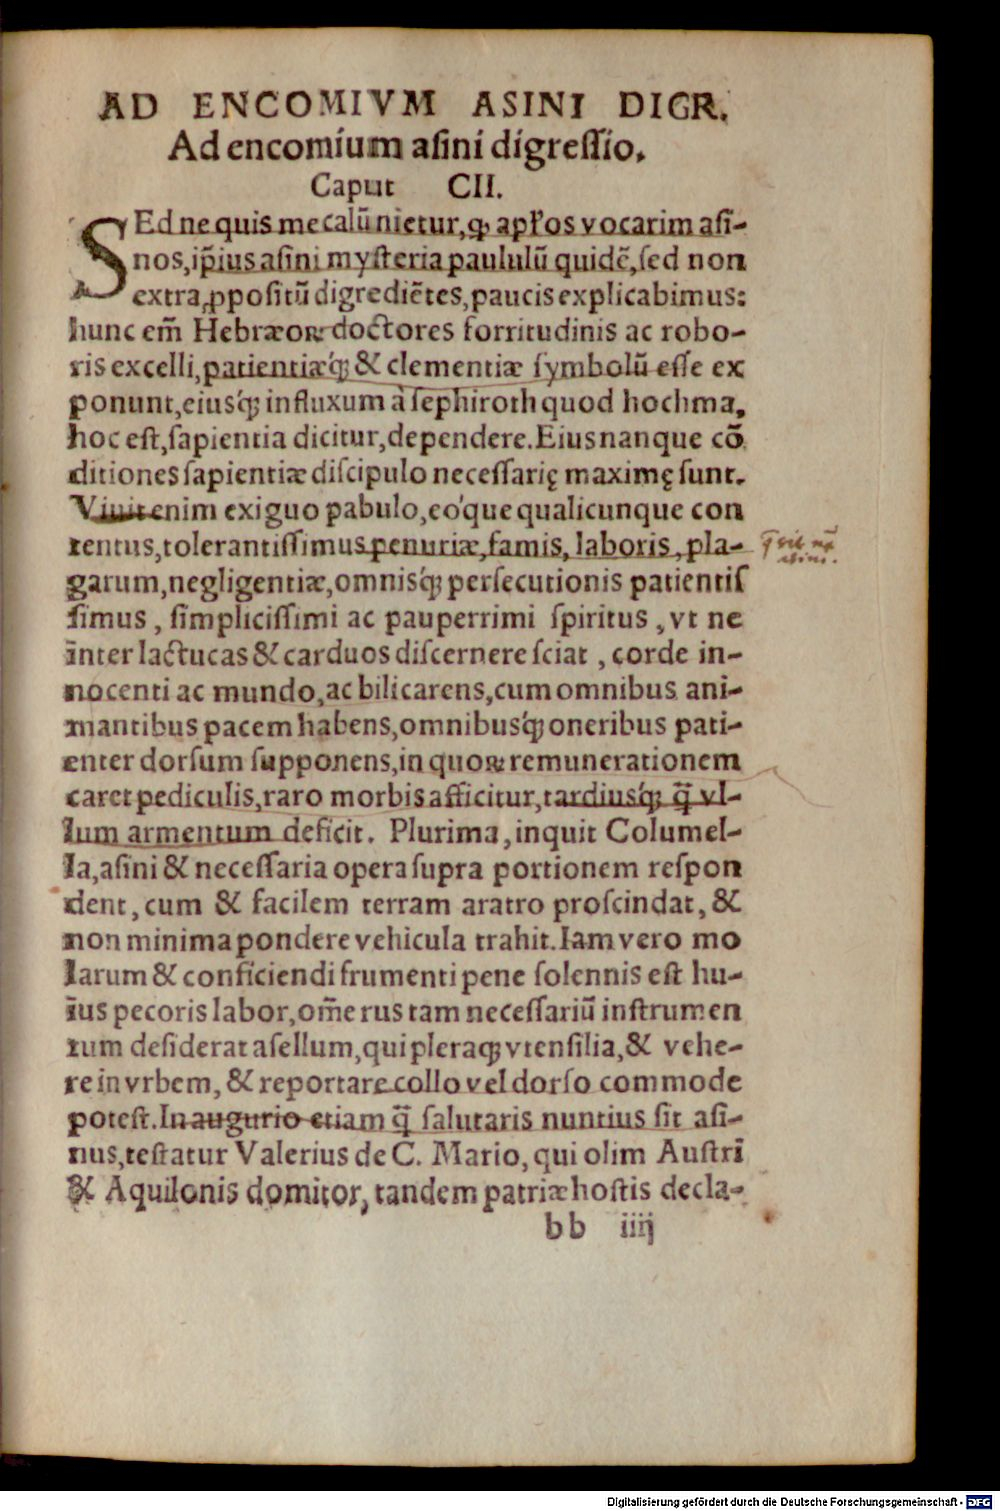 AD ENCOMIVM ASINI DIGR.
Ad encomium asini digressio.
Caput CII.
SEd ne quis me calũnietur, ꝙ apl̃os vocarim asi-
nos, ip̃ius asini mysteria paululũ quidẽ, sed non
extra ꝓpositũ digrediẽtes, paucis explicabimus:
hunc em̃ Hebræoꝝ doctores forritudinis ac robo-
ris excelli, patientiæq́ꝫ & clementiæ symbolũ esse ex
ponunt, eiusq́ꝫ influxum à sephiroth quod hochma,
hoc est, sapientia dicitur, dependere. Eius nanque cõ
ditiones sapientiæ discipulo necessarię maximę sunt.
Viuit enim exiguo pabulo, eóque qualicunque con
tentus, tolerantissimus penuriæ, famis, laboris, pla-
garum, negligentiæ, omnisq́ꝫ persecutionis patientis
simus, simplicissimi ac pauperrimi spiritus, vt ne
inter lactucas & carduos discernere sciat, corde in-
nocenti ac mundo, ac bili carens, cum omnibus ani-
mantibus pacem habens, omnibusq́ꝫ oneribus pati-
enter dorsum supponens, in quoꝝ remunerationem
caret pediculis, raro morbis afficitur, tardiusq́ꝫ q̃ vl-
lum armentum deficit. Plurima, inquit Columel-
la, asini & necessaria opera supra portionem respon
dent, cum & facilem terram aratro proscindat, &
non minima pondere vehicula trahit. Iam vero mo
larum & conficiendi frumenti pene solennis est hu-
ius pecoris labor, om̃e rus tam necessariũ instrumen
tum desiderat asellum, qui pleraqꝫ vtensilia, & vehe-
re in vrbem, & reportare collo vel dorso commode
potest. In augurio etiam q̃ salutaris nuntius sit asi-
nus, testatur Valerius de C. Mario, qui olim Austri
& Aquilonis domitor, tandem patriæ hostis decla-
bb iiij
Digitalisierung gefördert durch die Deutsche Forschungsgemeinschaft - DFG